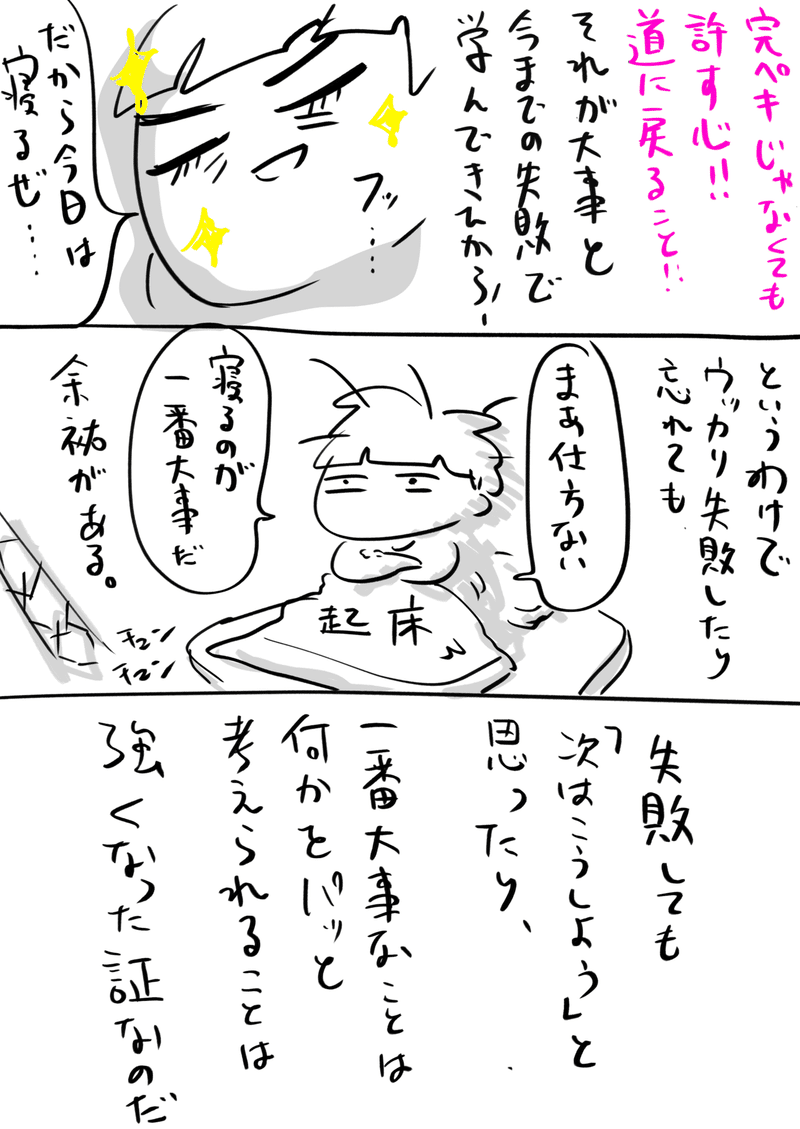 完ペキじゃなくても
許す心!!
道に戻ること!!
それが大事と
今までの失敗で
学んできたから、
フッ…
だから今日は
寝るぜ……
というわけで
ウッカリ失敗したり
忘れても
まあ仕方ない
寝るのが
一番大事だ
起床
余裕がある。
チュン
チュン
失敗しても
「次はこうしよう」と
思ったり、
一番大事なことは
何かをパッと
考えられることは
強くなった証なのだ